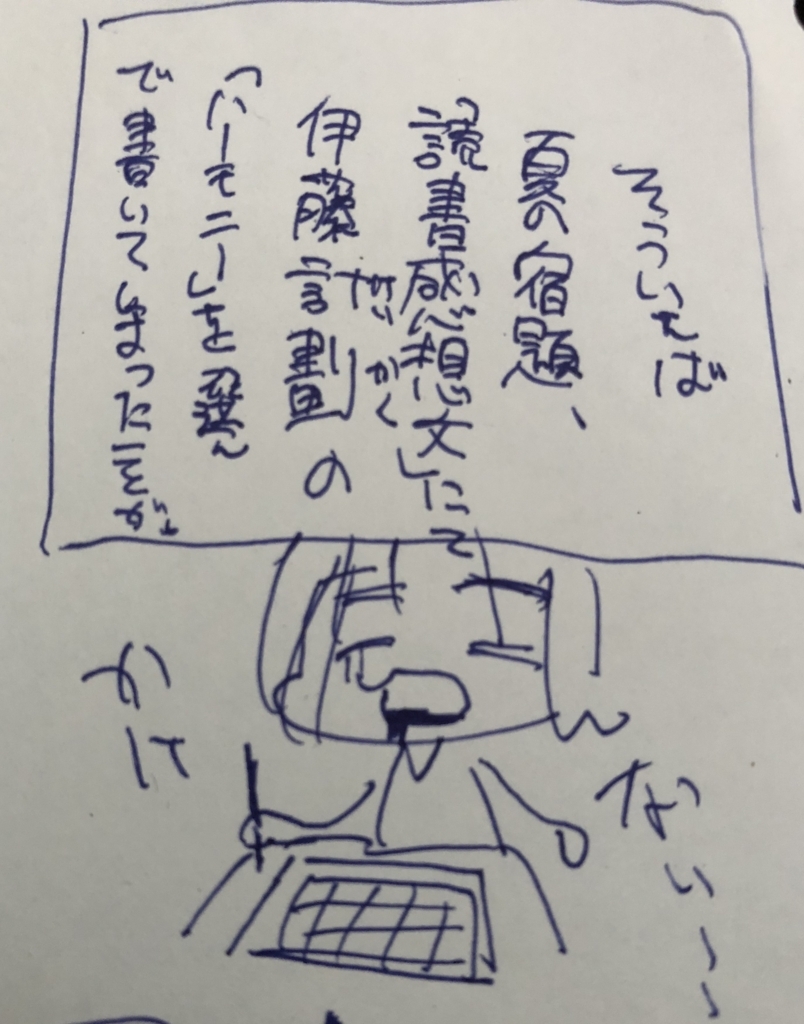 そういえば
夏の宿題、
「読書感想文」にて
伊藤計劃の
けいかく
「ハーモニー」を選ん
で書いてしまったことが
かけ
ない〜〜